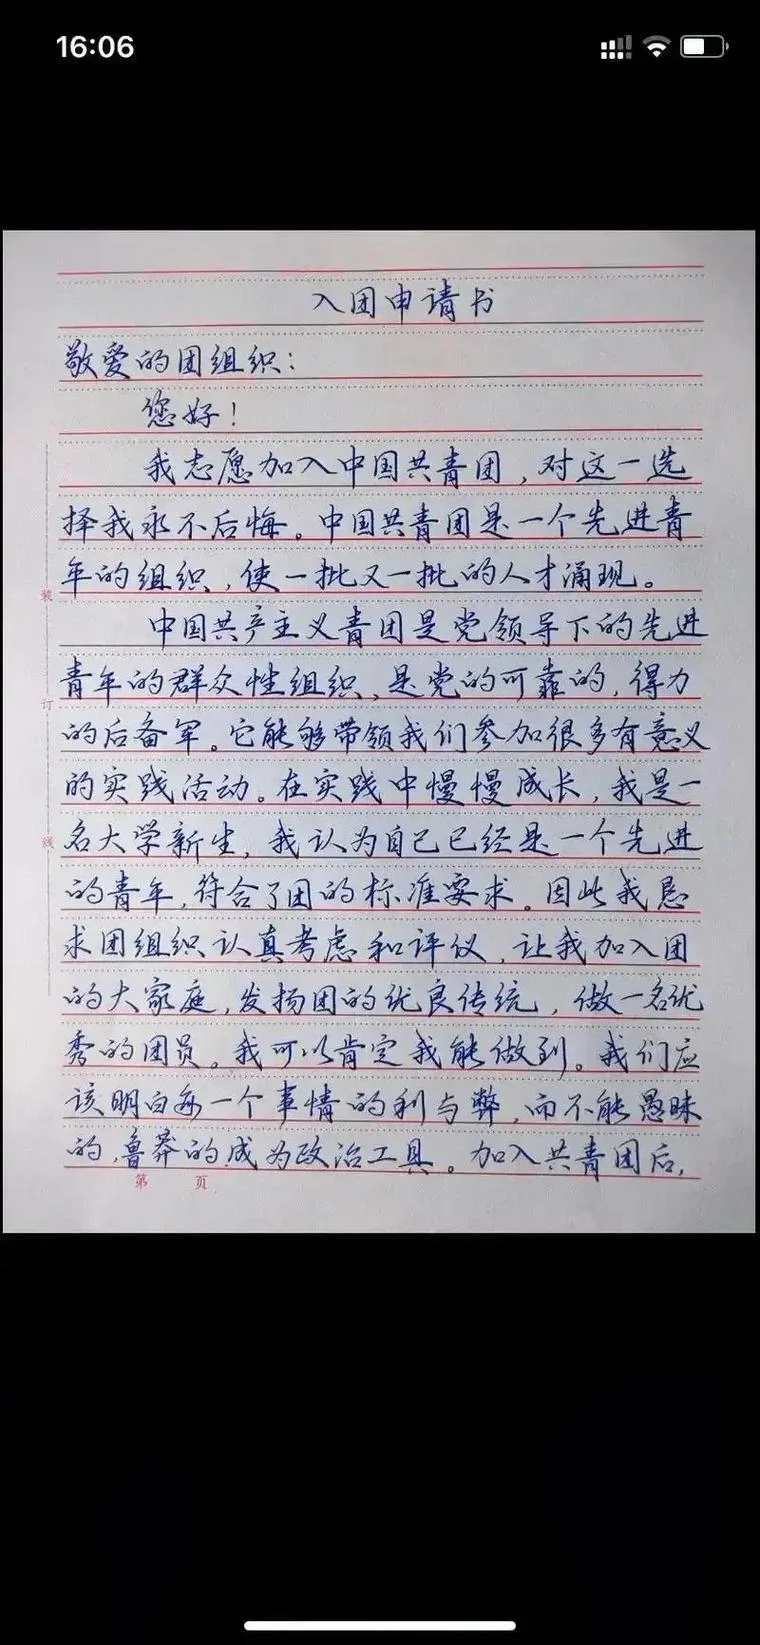 16:06
入团申请书
敬爱的团组织：
您好！
我志愿加入中国共青团，对这一选
择我永不后悔。中国共青团是一个先进青
年的组织，使一批又一批的人才涌现。
中国共产主义青团是党领导下的先进
青年的群众性组织、是党的可靠的，得力
的后备军。它能够带领我们参加很多有意义
的实践活动。在实践中慢慢成长，我是一
名大学新生，我认为自己已经是一个先进
的青年，符合了团的标准要求。因此我恳
求团组织认真考虑和评议，让我加入团
的大家庭，发扬团的优良传统，做一名优
秀的团员。我可以肯定我能做到。我们应
该明白每一个事情的利与弊，而不能愚昧
的，鲁莽的成为政治工具。加入共青团后，
第 页
装
订
线